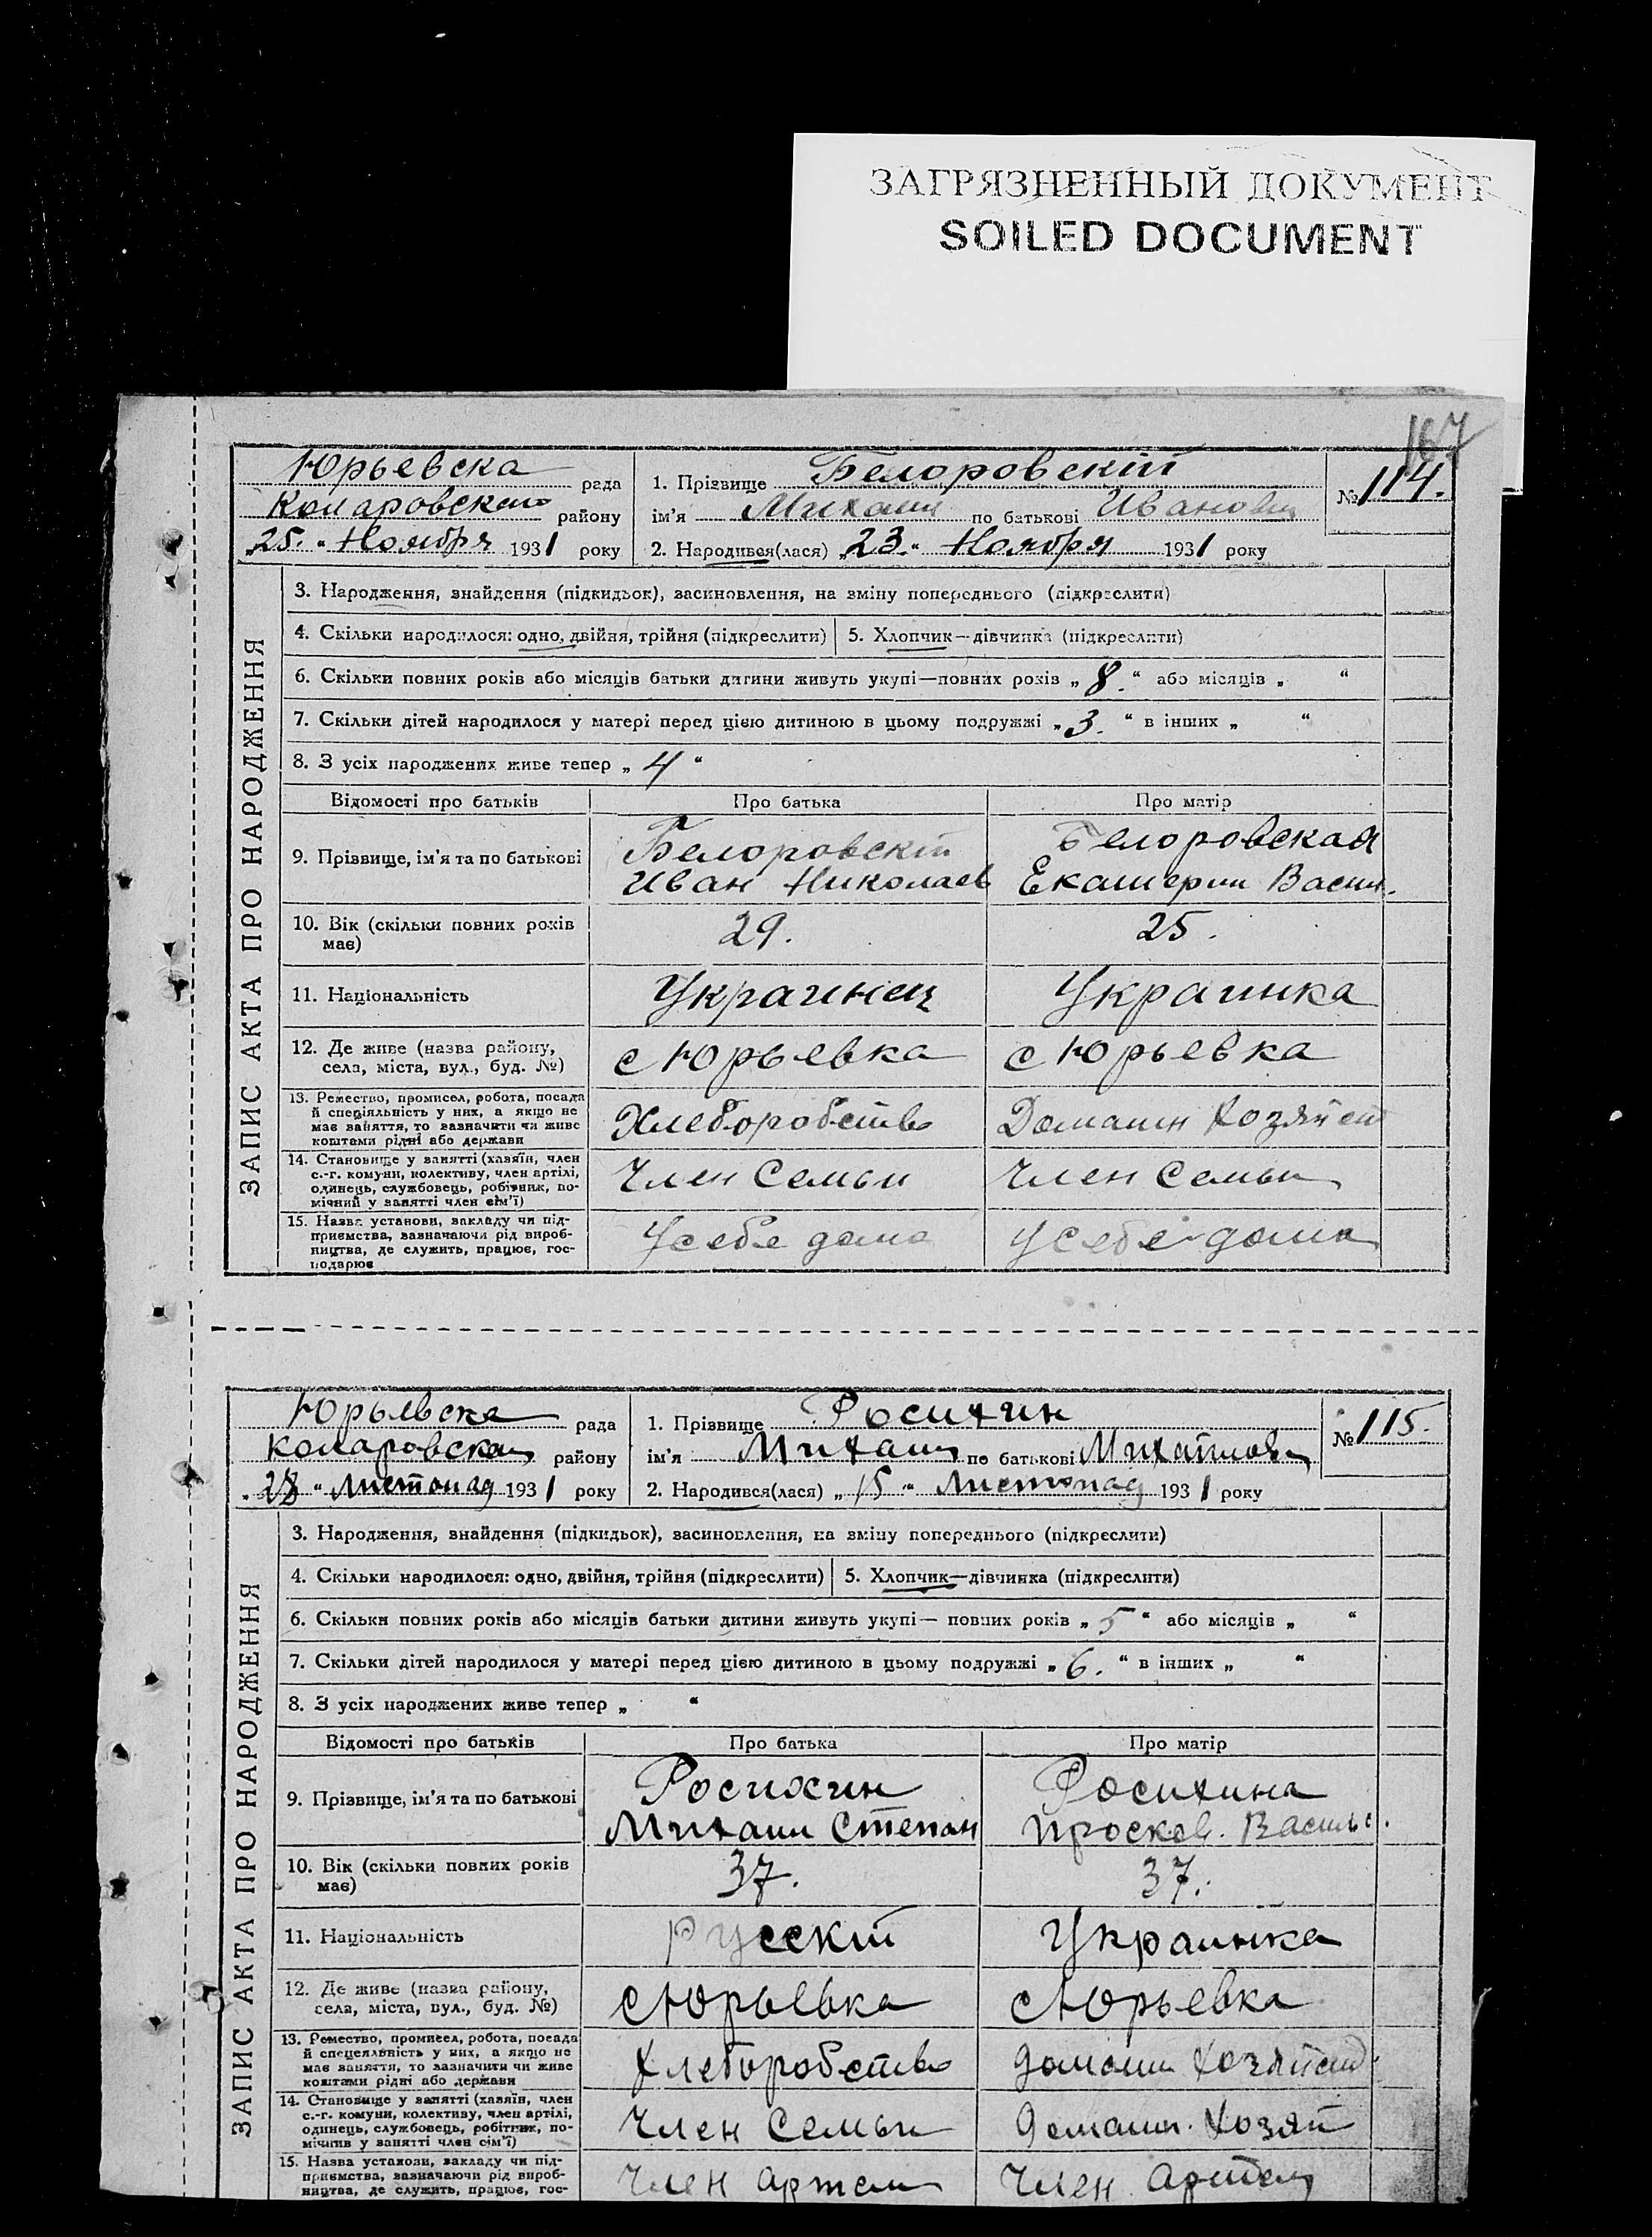 ЗАГРЯЗНЕННЫЙ ДОКУМЕНТ
SOILED DOCUMENT
167
Юрьевска рада
Комаровского району
„25.“ Ноября 1931 року
1. Прізвище Белоровскій
ім'я Михаил по батькові Иванович
2. Народився(лася) „23.“ Ноября 1931 року
№ 114.
ЗАПИС АКТА ПРО НАРОДЖЕННЯ
3. Народження, знайдення (підкидьок), засиновлення, на зміну попереднього (підкреслити)
4. Скільки народилося: одно, двійня, трійня (підкреслити) 5. Хлопчик—дівчинка (підкреслити)
6. Скільки повних років або місяців батьки дитини живуть укупі—повних років „8.“ або місяців „ “
7. Скільки дітей народилося у матері перед цією дитиною в цьому подружжі „3.“ в інших „ “
8. З усіх народжених живе тепер „4“
Відомості про батьків Про батька Про матір
9. Прізвище, ім'я та по батькові
Белоровскій Белоровская
Иван Николаев Екатерин Васил.
10. Вік (скільки повних років
має)
29. 25.
11. Національність Украинец Украинка
12. Де живе (назва району,
села, міста, вул., буд. №)
с Юрьевка с Юрьевка
13. Ремество, промисел, робота, посада
й спеціяльність у них, а якщо не
має заняття, то зазначити чи живе
коштами рідні або держави
Хлеборобство Домашн Хозяйст
14. Становище у занятті (хазяїн, член
с.-г. комуни, колективу, член артілі,
одинець, службовець, робітник, по-
мічний у занятті член сім'ї)
Член Семьи Член Семьи
15. Назва установи, закладу чи під-
приємства, зазначаючи рід вироб-
ництва, де служить, працює, гос-
подарює
У себе дома У себе дома
Юрьевска рада
Комаровска району
„28“ Листопад 1931 року
1. Прізвище Росихин
ім'я Михаил по батькові Михайлович
2. Народився(лася) „15“ Листопад 1931 року
№ 115.
ЗАПИС АКТА ПРО НАРОДЖЕННЯ
3. Народження, знайдення (підкидьок), засиновлення, на зміну попереднього (підкреслити)
4. Скільки народилося: одно, двійня, трійня (підкреслити) 5. Хлопчик—дівчинка (підкреслити)
6. Скільки повних років або місяців батьки дитини живуть укупі— повних років „5“ або місяців „ “
7. Скільки дітей народилося у матері перед цією дитиною в цьому подружжі „6.“ в інших „ “
8. З усіх народжених живе тепер „ “
Відомості про батьків Про батька Про матір
9. Прізвище, ім'я та по батькові
Росихин Росихина
Михаил Степан Просков. Васильє.
10. Вік (скільки повних років
має)
37. 37.
11. Національність Русскій Украинка
12. Де живе (назва району,
села, міста, вул., буд. №)
с Юрьевка с Юрьевка
13. Ремество, промисел, робота, посада
й спецеяльність у них, а якщо не
має заняття, то зазначити чи живе
коштами рідні або держави
Хлеборобство домашн Хозяйств
14. Становище у занятті (хазяїн, член
с.-г. комуни, колективу, член артілі,
одинець, службовець, робітник, по-
мічнив у занятті член сім'ї)
Член Семьи Домашн. Хозяй
15. Назва установи, закладу чи під-
приємства, зазначаючи рід вироб-
ництва, де служить, працює, гос-
Член артели Член артели